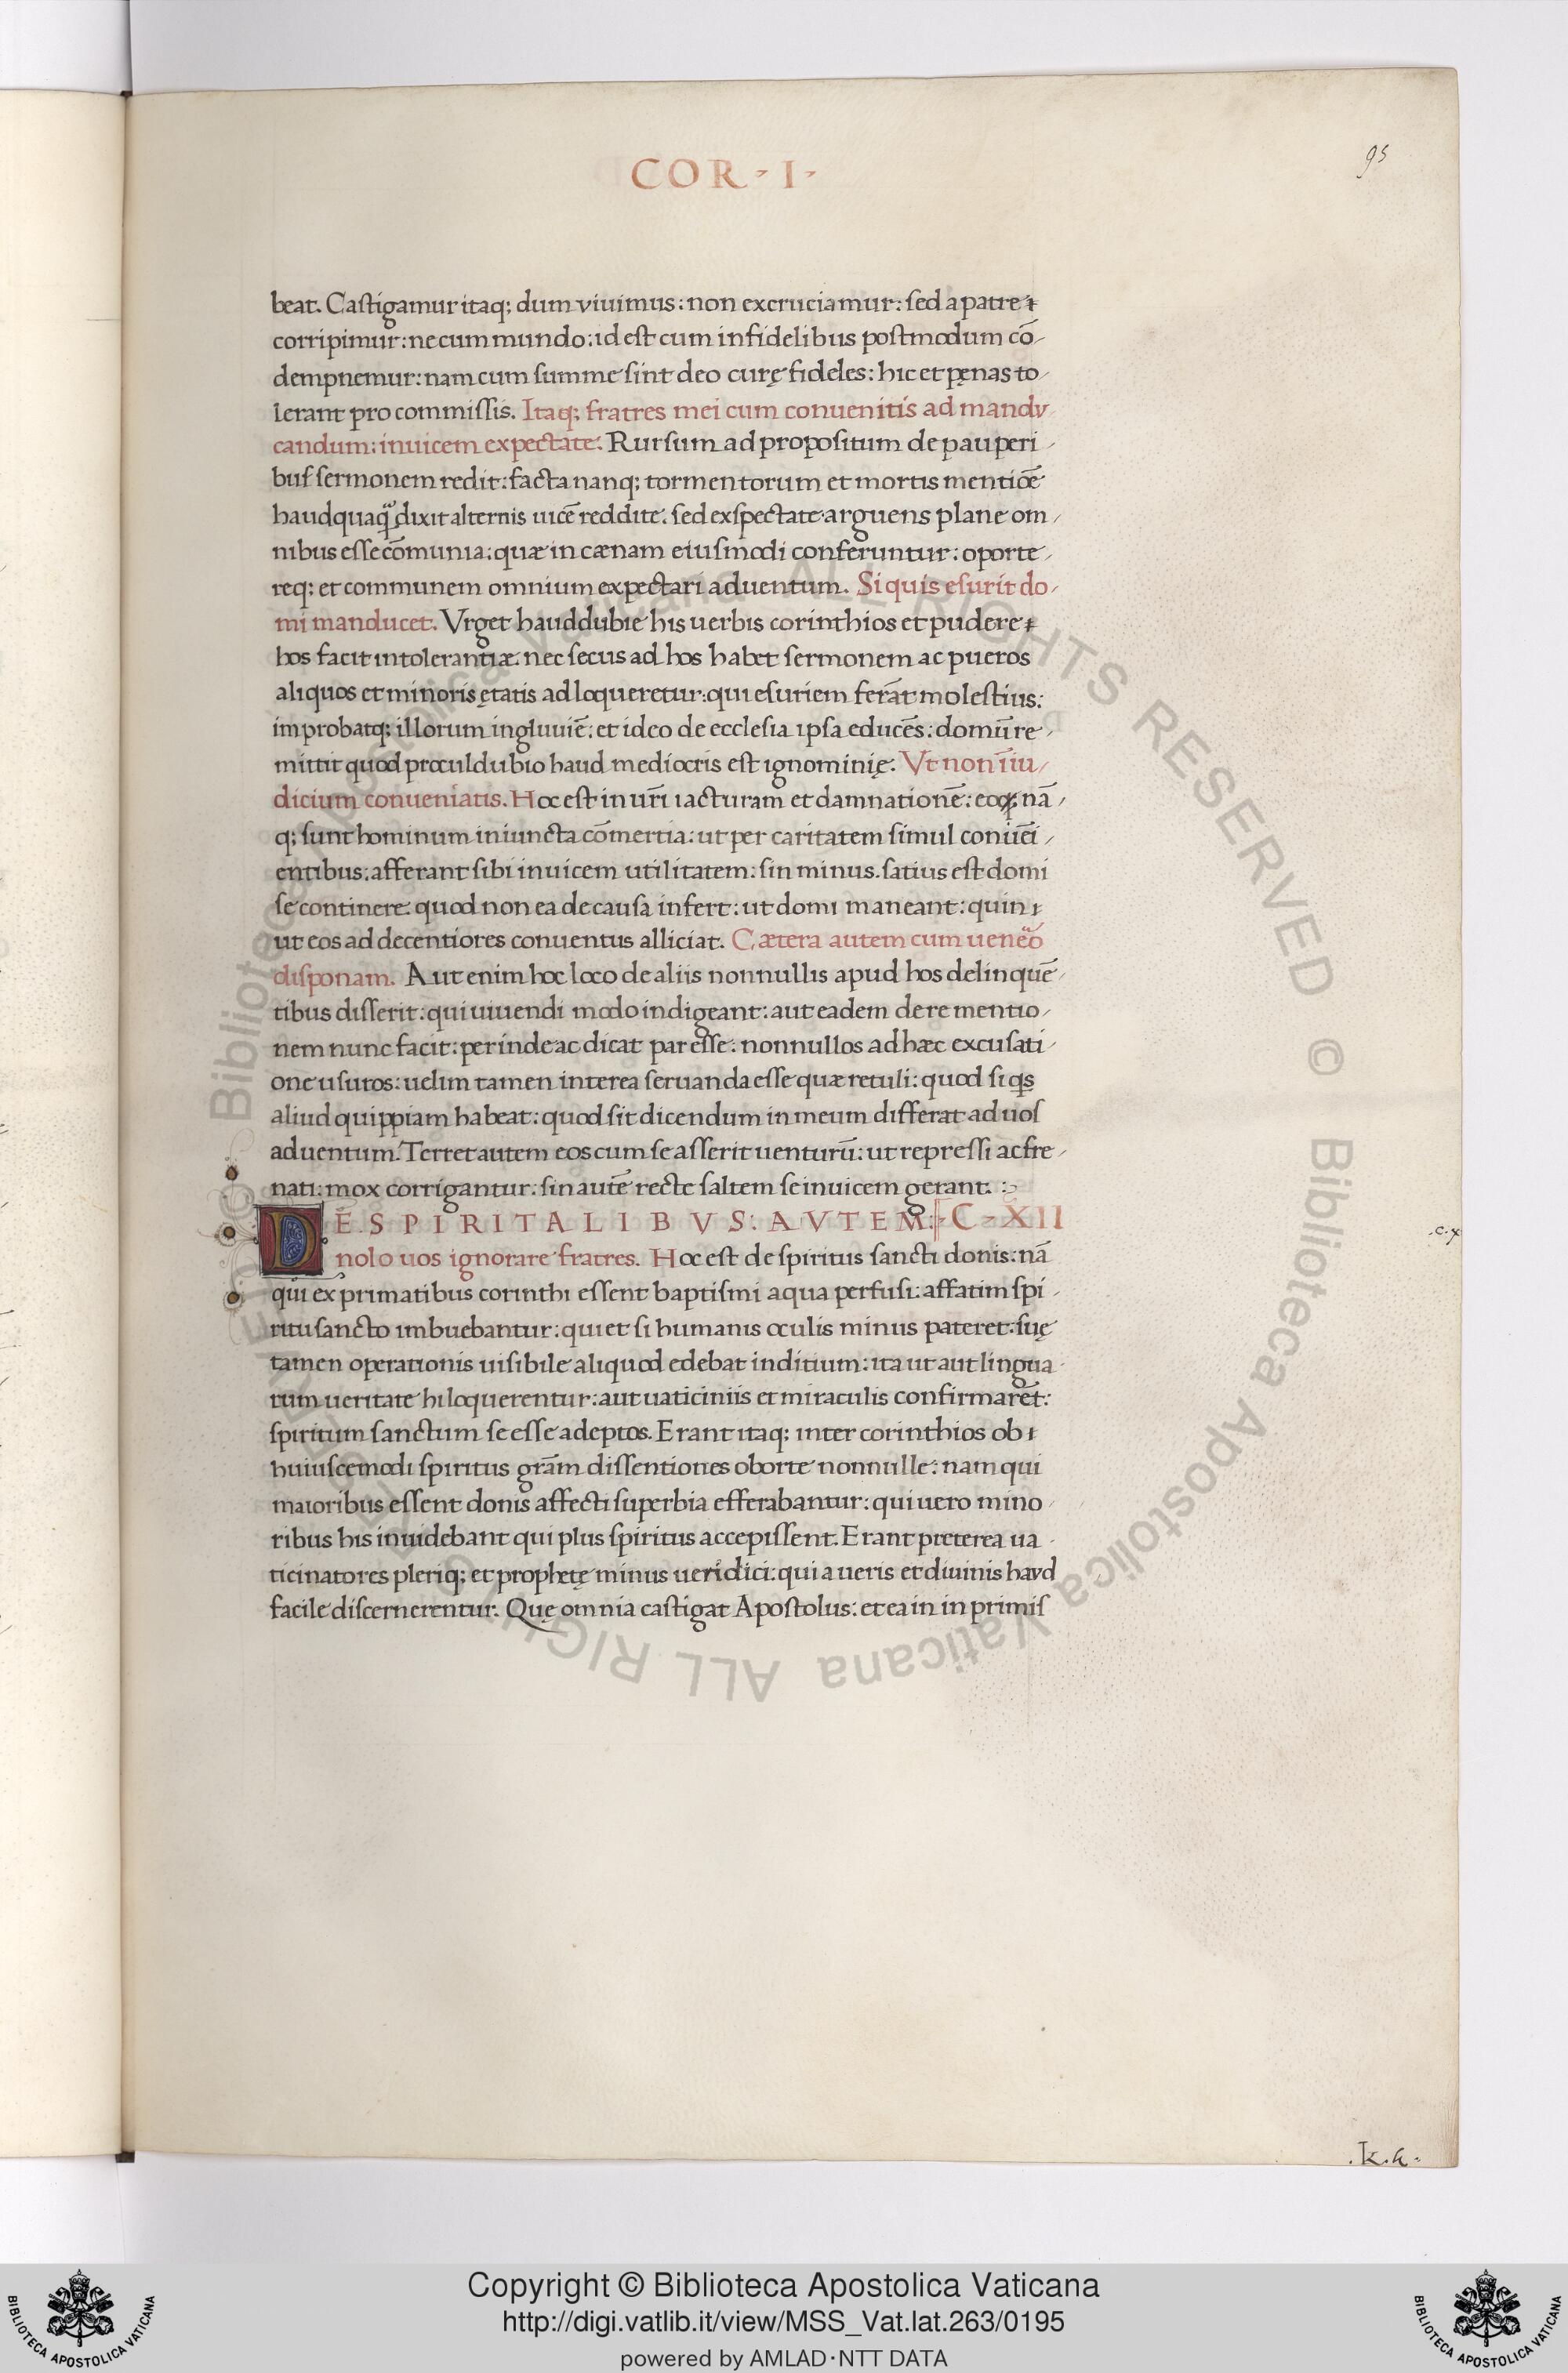 COR · I ·
95
beat. Castigamur itaq; dum viuimus: non excruciamur: sed a patre
corripimur: ne cum mundo: id est cum infidelibus postmodum cō
dempnemur: nam cum summe sint deo curę fideles: hic et pęnas to
lerant pro commissis. Itaq; fratres mei cum conuenitis ad mandv
candum: inuicem expectate. Rursum ad propositum de pauperi
bus sermonem redit: facta nanq; tormentorum et mortis mentiōe
haudquaq̃ dixit alternis uicē reddite. sed exspectate arguens plane om
nibus esse cōmunia: quæ in cænam eiusmodi conferuntur: oporte
req; et communem omnium expectari aduentum. Si quis esurit do
mi manducet. Vrget haud dubie his uerbis corinthios et pudere
hos facit intolerantiæ. nec secus ad hos habet sermonem ac pueros
aliquos et minoris ętatis adloqueretur: qui esuriem ferāt molestius:
improbatq; illorum ingluuiē: et ideo de ecclesia ipsa educēs: domū re
mittit quod proculdubio haud mediocris est ignominię. Vt non ī iu
dicium conueniatis. Hoc est in ur̄i iacturam et damnationē: eoꝝ nā
q; sunt hominum iniuncta cōmertia: ut per caritatem simul conuēi
entibus: afferant sibi inuicem utilitatem: sin minus. satius est domi
se continere. quod non ea de causa infert: ut domi maneant: quin
ut eos ad decentiores conuentus alliciat. Cætera autem cum uenero
disponam. Aut enim hoc loco de aliis nonnullis apud hos delinquē
tibus disserit: qui uiuendi modo indigeant: aut eadem de re mentio
nem nunc facit: perinde ac dicat par esse: nonnullos ad hæc excusati
one usuros: uelim tamen interea seruanda esse quæ retuli: quod si qs
aliud quippiam habeat: quod sit dicendum in meum differat ad uos
aduentum. Terret autem eos cum se asserit uenturū: ut repressi ac fre
nati: mox corrigantur: sin autē recte saltem se inuicem gerant. :
DE SPIRITALIBVS: AVTEM: C XII
nolo uos ignorare fratres. Hoc est de spiritus sancti donis: nā
qui ex primatibus corinthi essent baptismi aqua perfusi: affatim spi
ritu sancto imbuebantur: qui et si humanis oculis minus pateret: suę
tamen operationis uisibile aliquod edebat inditium: ita ut aut lingua
rum ueritate hi loquerentur: aut uaticiniis et miraculis confirmarēt:
spiritum sanctum se esse adeptos. Erant itaq; inter corinthios ob
huiuscemodi spiritus grām dissentiones oborte nonnulle: nam qui
maioribus essent donis affecti superbia efferabantur: qui uero mino
ribus his inuidebant qui plus spiritus accepissent. Erant preterea ua
ticinatores pleriq; et prophetę minus ueridici: qui a ueris et diuinis havd
facile discernerentur. Quę omnia castigat Apostolus: et ea in in primis
.c.x
.k.6.
Copyright © Biblioteca Apostolica Vaticana
http://digi.vatlib.it/view/MSS_Vat.lat.263/0195
powered by AMLAD·NTT DATA
BIBLIOTECA APOSTOLICA VATICANA
BIBLIOTECA APOSTOLICA VATICANA
© Biblioteca Apostolica Vaticana ALL RIGHTS RESERVED © Biblioteca Apostolica Vaticana ALL RIGHTS RESERVED